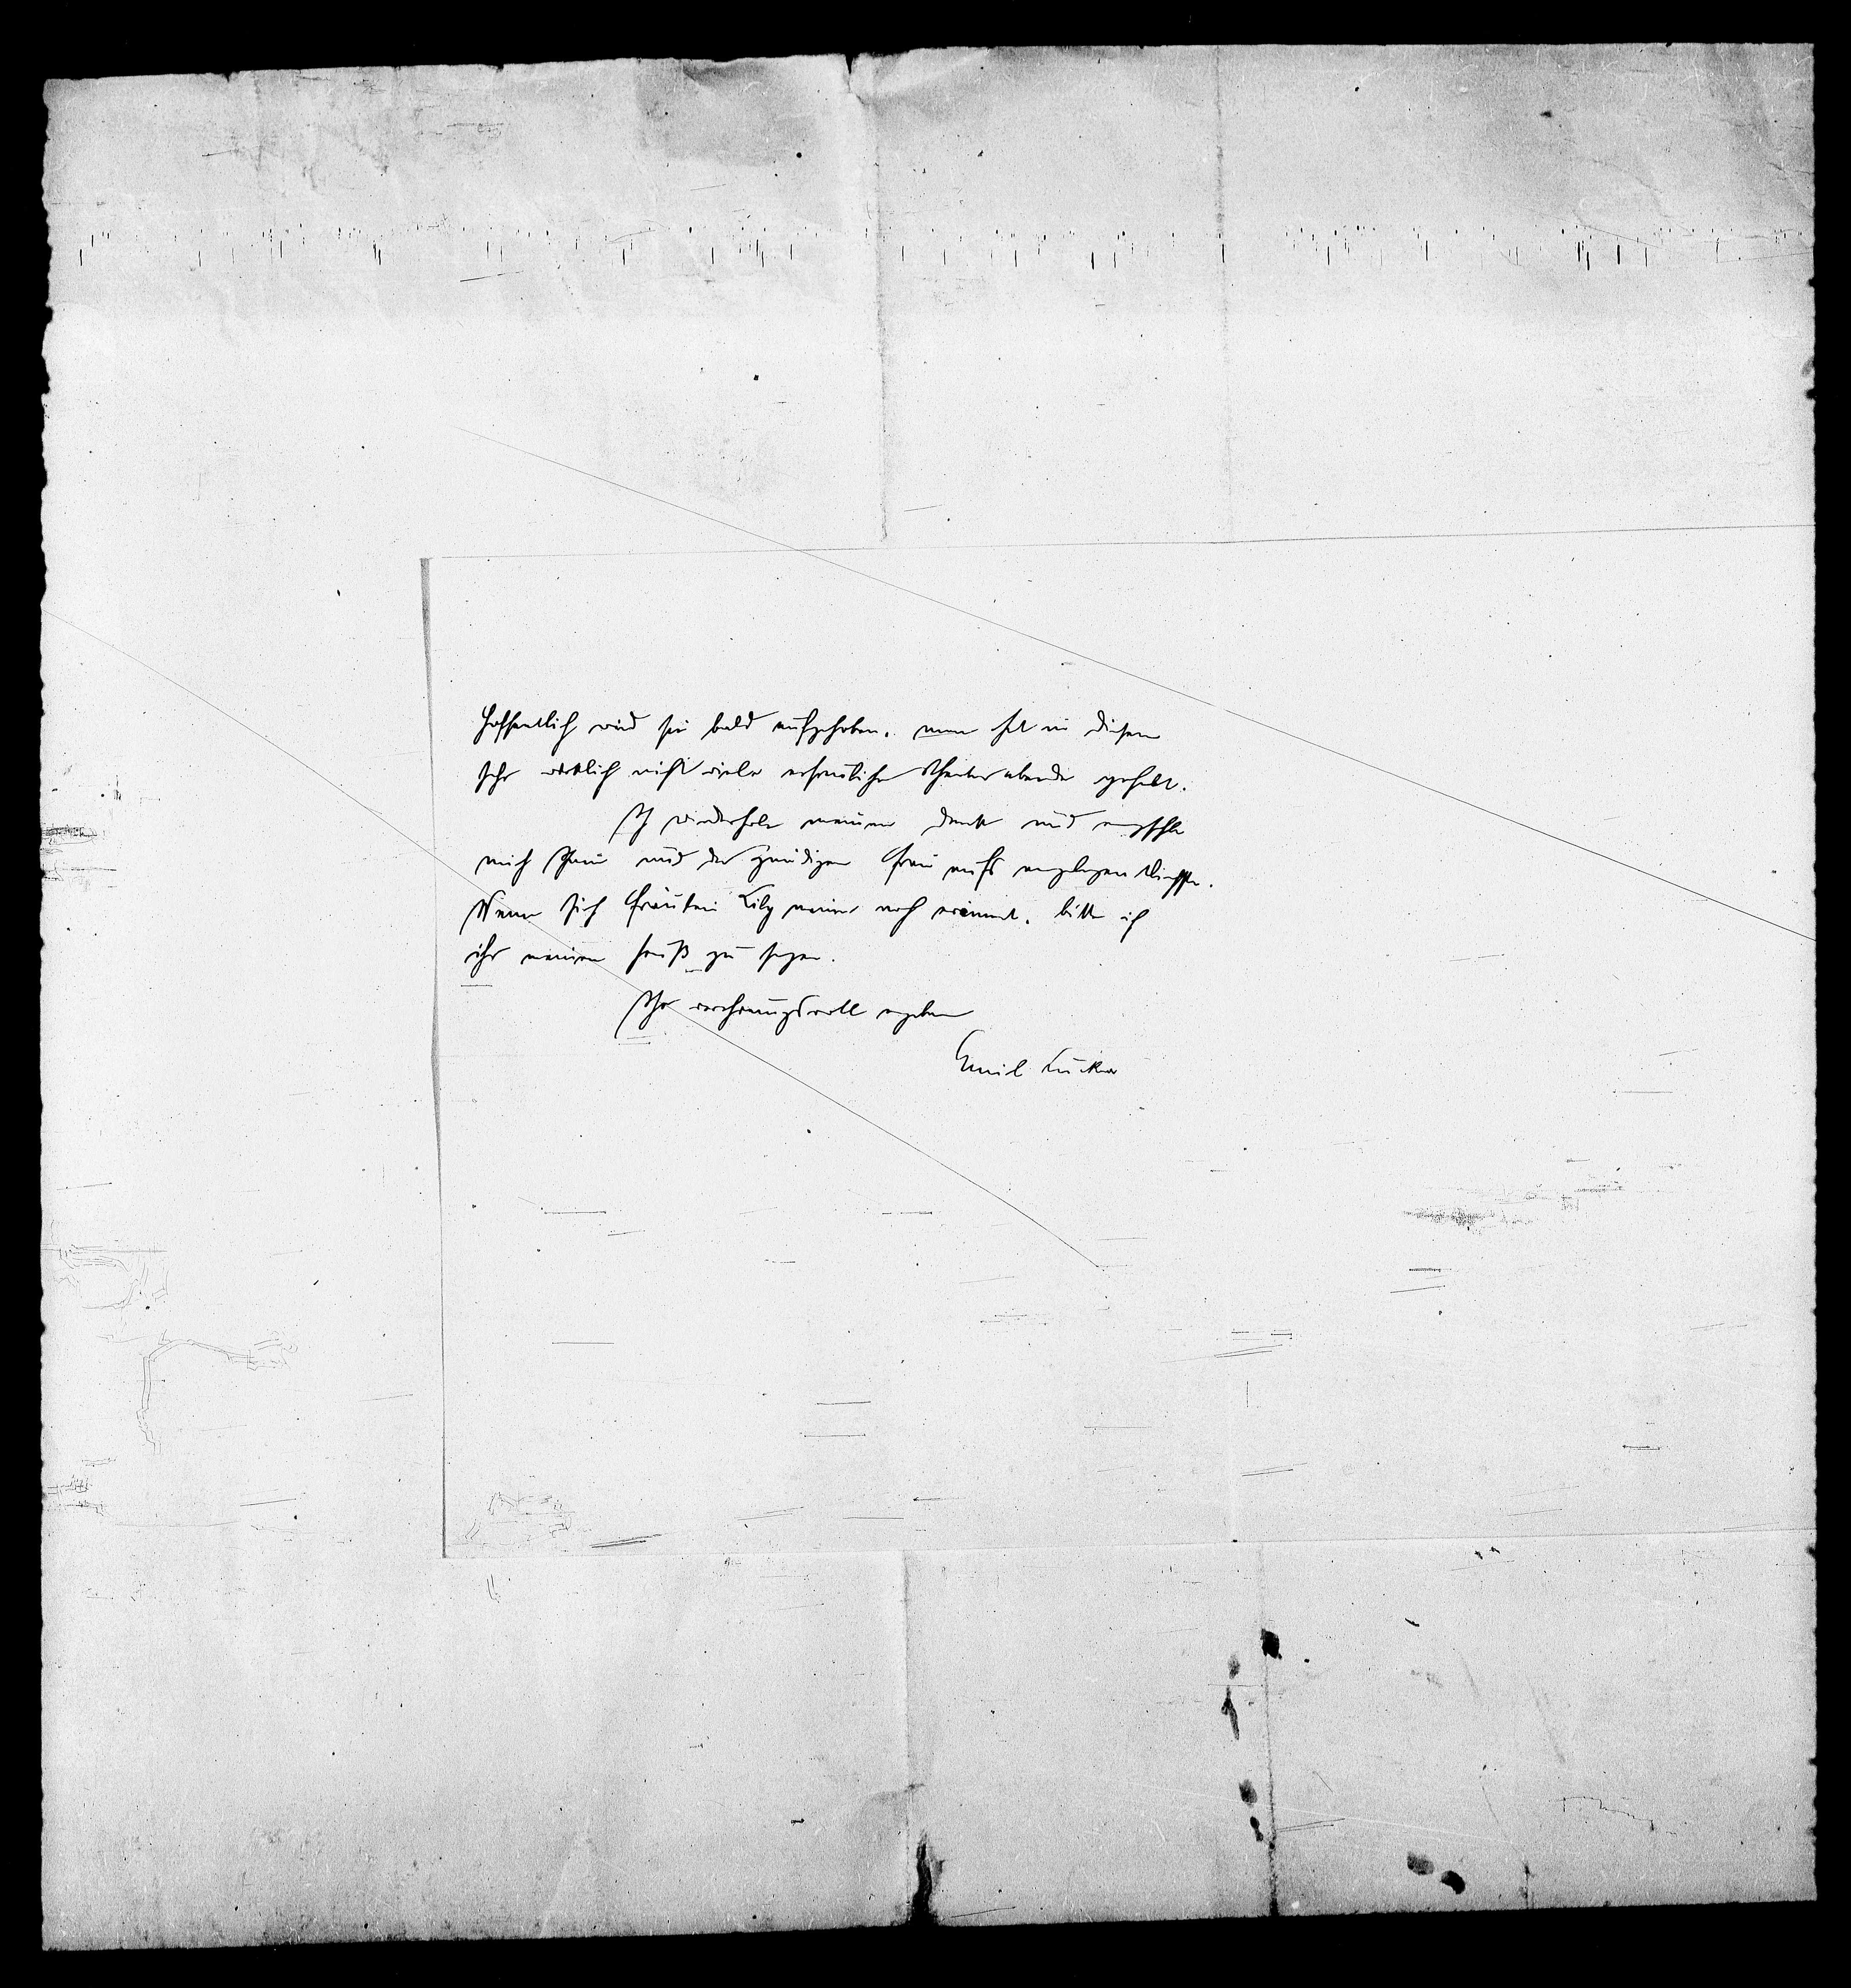 Hoffentlich wird sie bald aufgehoben. man hat in diesem
Jahr wirklich nicht viele erfreuliche Theaterabende gehabt.
Ich wiederhole meinen Dank und empfehle
mich Ihnen und der gnädigen Frau aufs angelegentlichste.
Wenn sich Fräulein Lily meiner noch erinnert, bitte ich
ihr meinen Gruß zu sagen.
Ihr verehrungsvoll ergebener
Emil Lucka